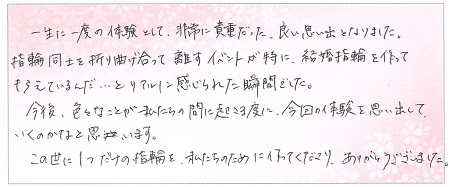 一生に一度の体験として、非常に貴重だった、良い思い出となりました。
指輪同士を折り曲げ合って離すイベントが特に、結婚指輪を作って
もらえているんだ…とリアルに感じられた瞬間でした。
今後、色々なことが私たちの間に起こる度に、今回の体験を思い出して
いくのかなと思います。
この世に1つだけの指輪を、私たちのために作ってくださり、ありがとうございました。